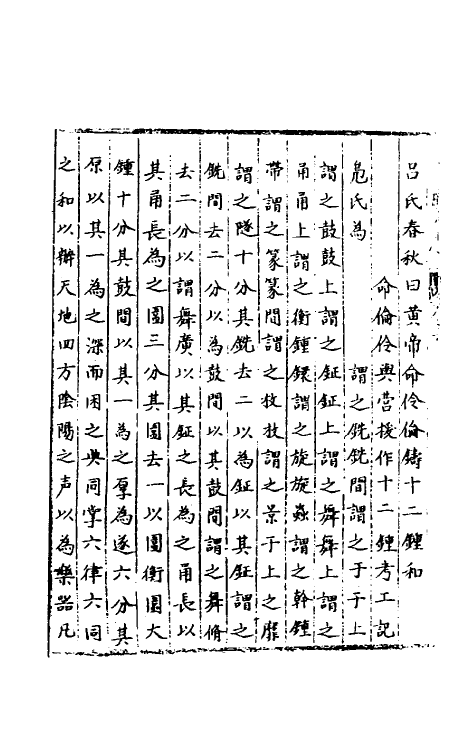 吕氏春秋曰黄帝命伶倫鑄十二鍾和
命倫伶與営援作十二鍾考工記
凫氏為 謂之銑銑間謂之于于上
謂之鼓鼓上謂之鉦鉦上謂之舞舞上謂之
甬甬上謂之衡鍾鐶謂之旋旋蟲謂之幹鍾
帶謂之篆篆間謂之枚枚謂之景于上之靡
謂之隧十分其銑去二以為鉦以其鉦謂之
銑間去二分以為鼓間以其鼓間謂之舞脩
去二分以謂舞廣以其鉦之長為之甬長以
其甬長為之圍三分其圍去一以圍衡圍大
鍾十分其鼓間以其一為之厚為遂六分其
厚以其一為之深而困之典同掌六律六同
之和以辯天地四方陰陽之声以為樂器凡